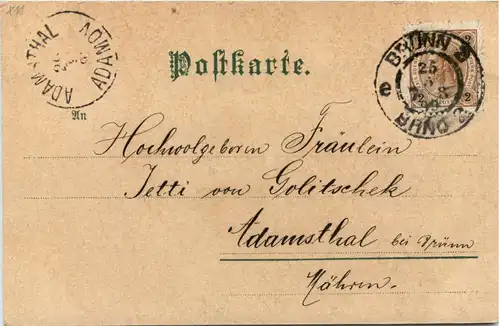 ADAMSTHAL ADAMOV
BRÜNN 2
25
BRNO 2
2 2
Postkarte.
An
Hochwolgeboren Fräulein
Jetti von Golitschek
Adamsthal bei Brünn
Mähren.